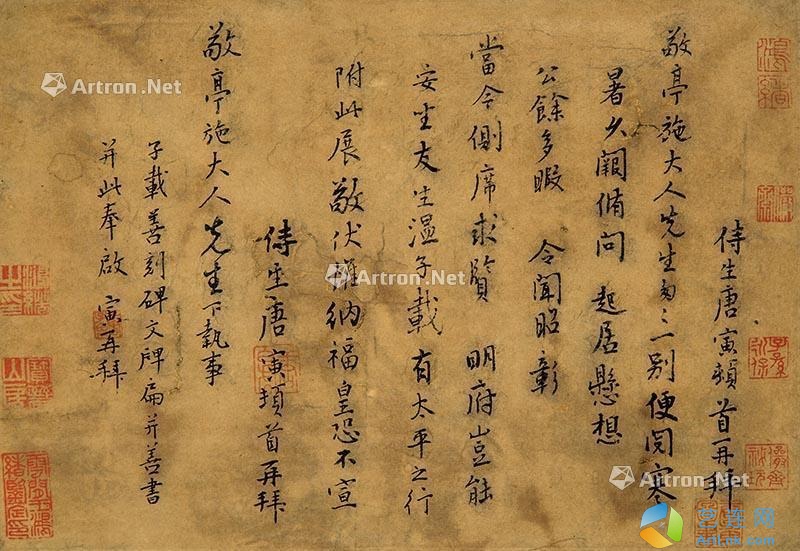 侍生唐寅頓首再拜
敬亭施大人先生匆匆一別便閱寒
暑久闕脩問 起居懸想
公餘多暇 令聞昭彰
當今側席求賢 明府豈能
安生友生溫子載有太平之行
附此展敬伏惟納福皇恐不宣
侍生唐寅頓首再拜
敬亭施大人先生下執事
子載善刻碑文牌扁并善書
并此奉啟 寅再拜
Artron.Net
Artron.Net
Artron.Net
Artron.Net
Artron.Net
艺连网